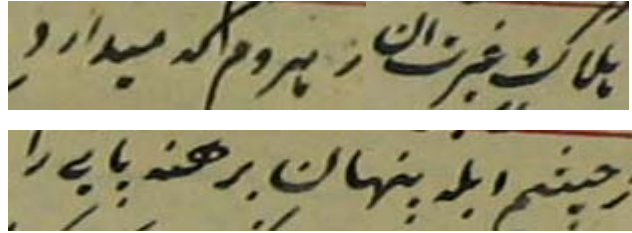 هلاک غیرت ان رهروم که میدارد
ز چشم ابله پنهان برهنه پایی را